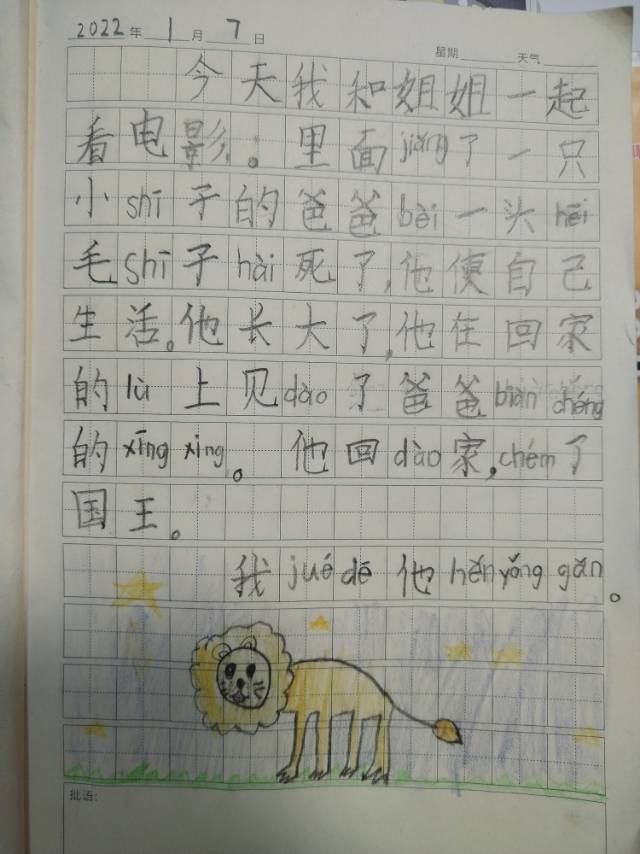 2022年1月7日 星期 天气
今天我和姐姐一起
看电影。里面jiǎng了一只
小shī子的爸爸bèi一头hēi
毛shī子hài死了,他便自己
生活。他长大了,他在回家
的lù上见dào了爸爸biàn chéng
的xīng xing。他回dào家,chém了
国王。
我jué dē 他hěn yǒng gǎn。
批语: